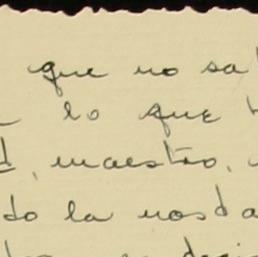 que no sa
lo que
d, maestro,
do la nosda